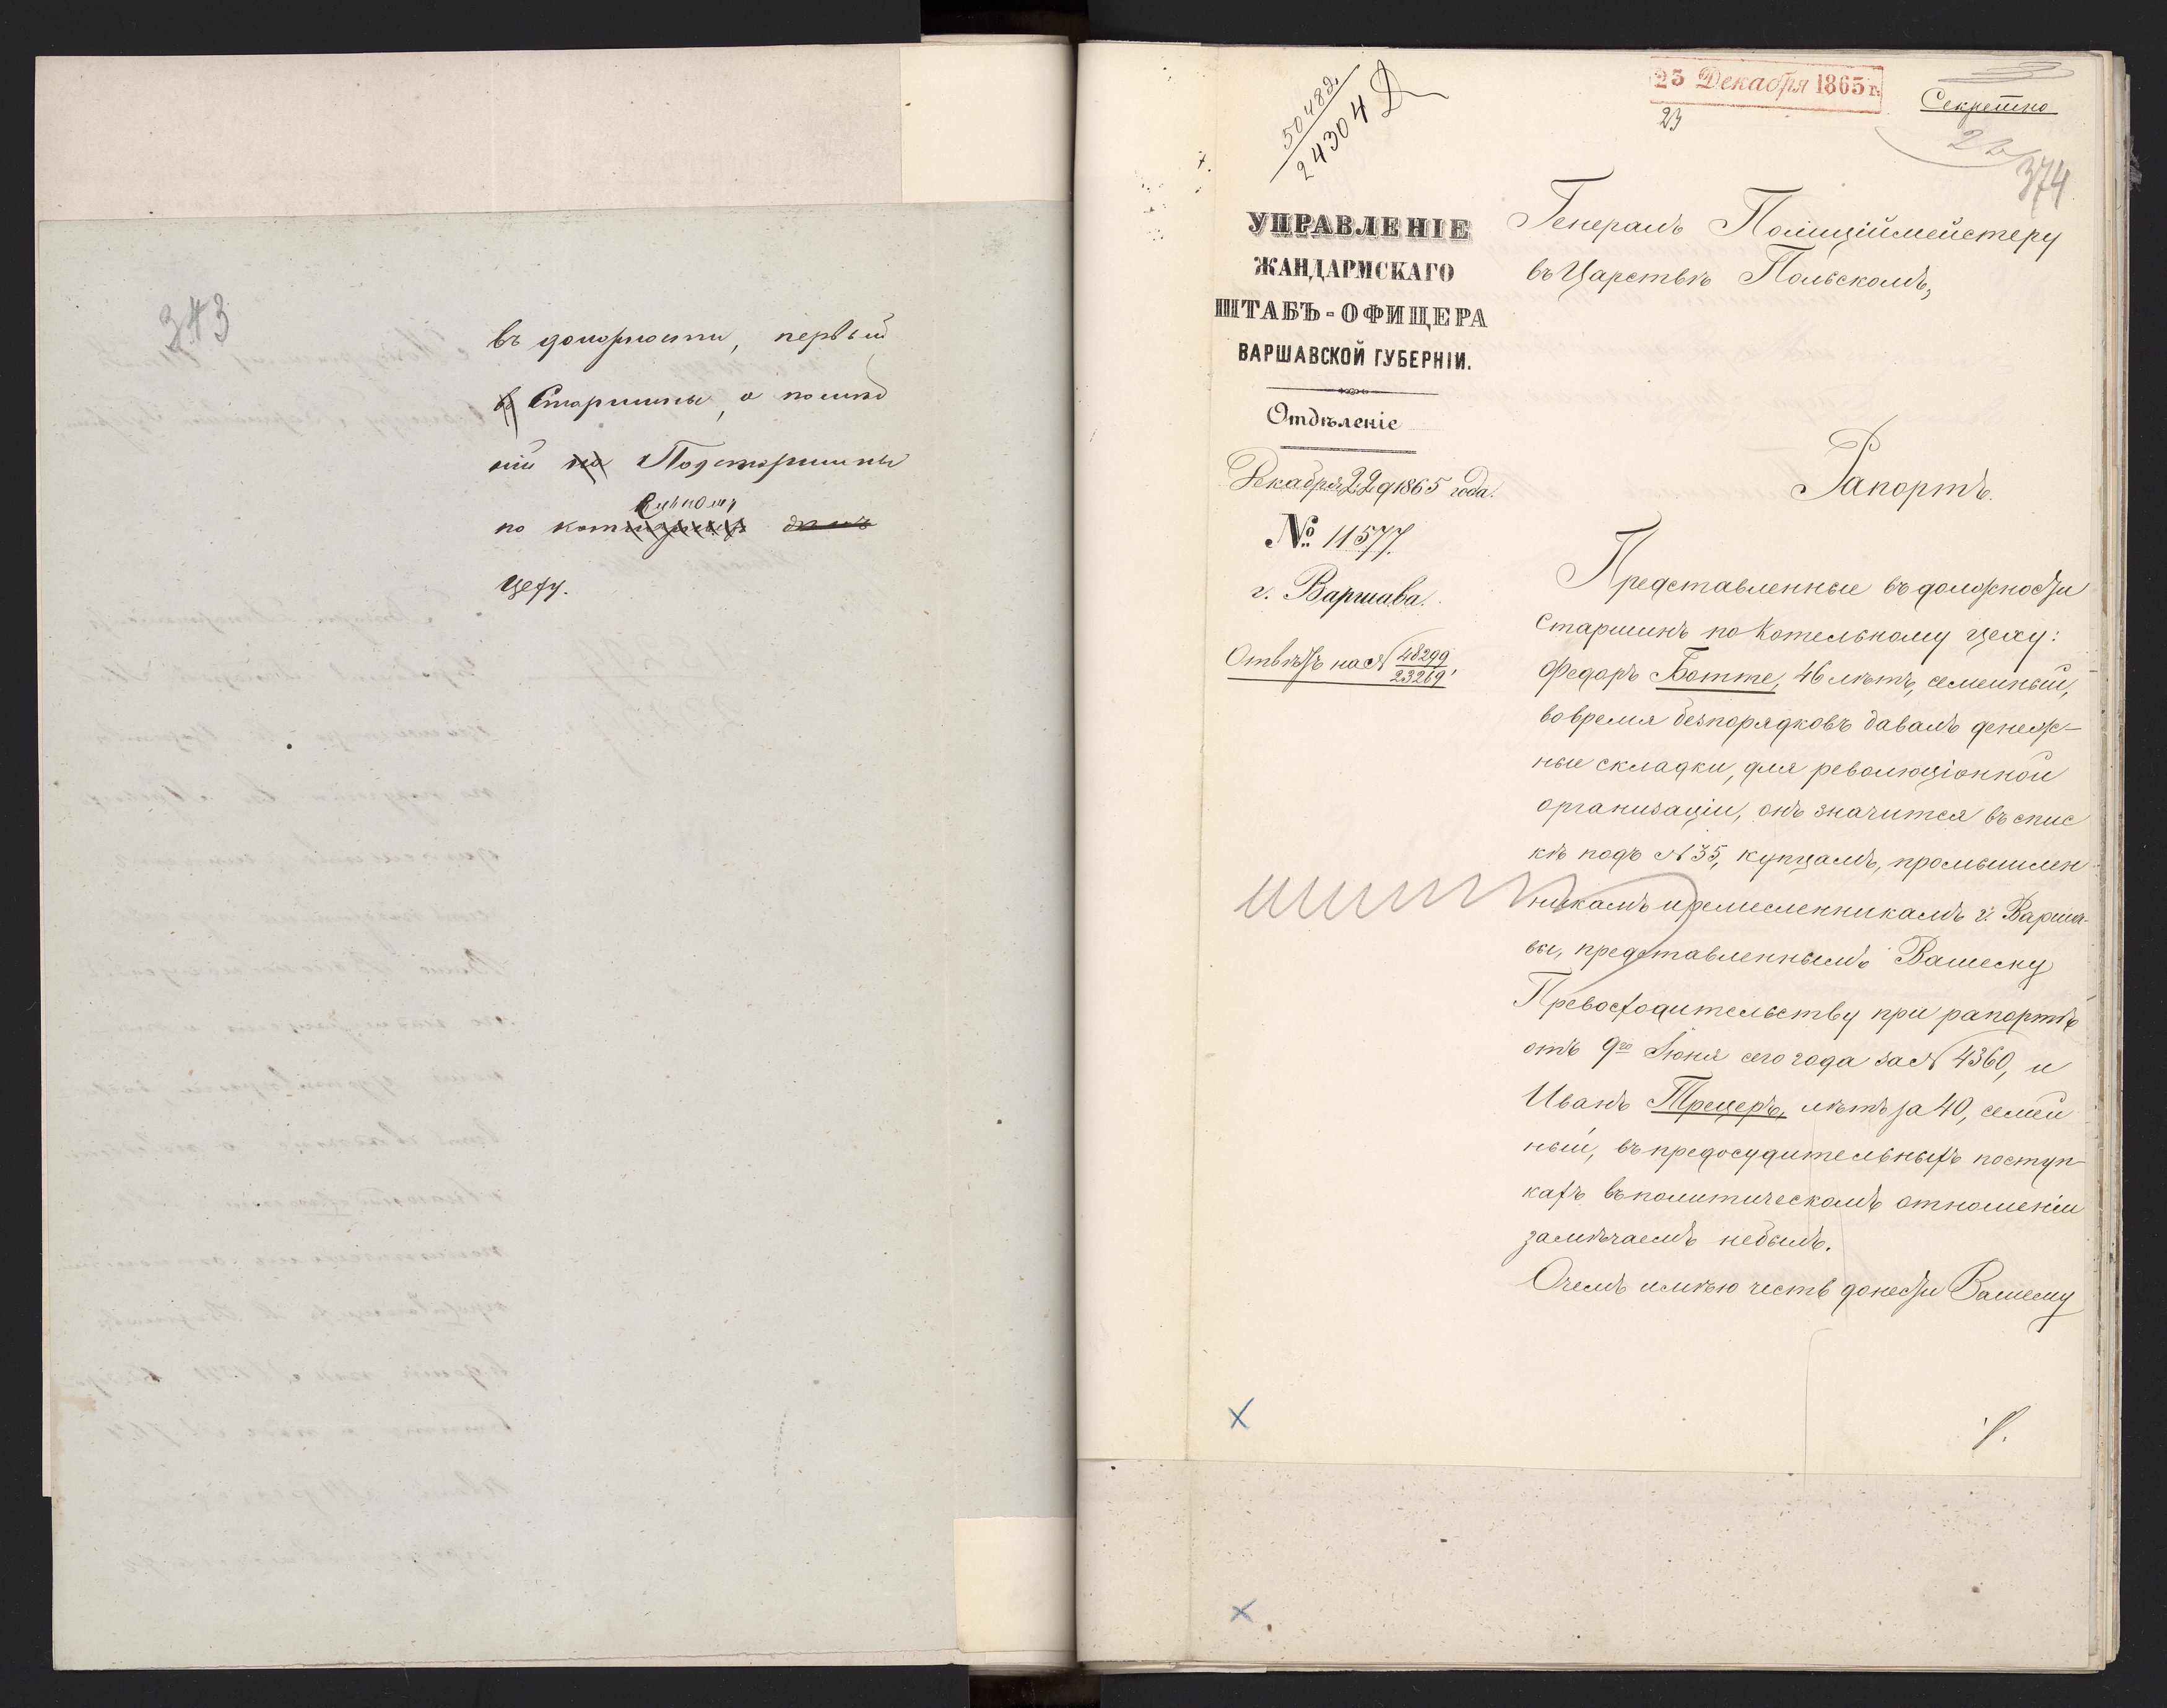 343
въ должности, первый
въ Старшины, а послѣд
ній на Подстаршины
по котельному
Цеху.
50482
24304 Д
23 Декабря 1865 г.
23
Секретно
374
УПРАВЛЕНІЕ
ЖАНДАРМСКАГО
ШТАБЪ-ОФИЦЕРА
ВАРШАВСКОЙ ГУБЕРНІИ.
Отдѣленіе
Декабря 22 д 1865 года.
№ 11577.
г. Варшава.
Отвѣтъ на № 48299
23269
Генералъ Полиціймейстеру
въ Царствѣ Польскомъ,
Рапортъ.
Представленные въ должности
Старшинъ по Котельному цеху:
Федоръ Ботте, 46 лѣтъ, семейный,
во время безпорядковъ давалъ денеж-
ные складки, для революціонной
организаціи, онъ значится въ спис
кѣ подъ № 35, купцамъ, промышлен
никамъ и ремесленникамъ г. Варша-
вы, представленнымъ Вашему
Превосходительству при рапортѣ
отъ 9го Іюня сего года за № 4360, и
Иванъ Трецеръ, лѣтъ за 40, семей
ный, въ предосудительныхъ поступ-
кахъ въ политическомъ отношеніи
замѣчаемъ небылъ.
Очемъ имѣю честь донести Вашему